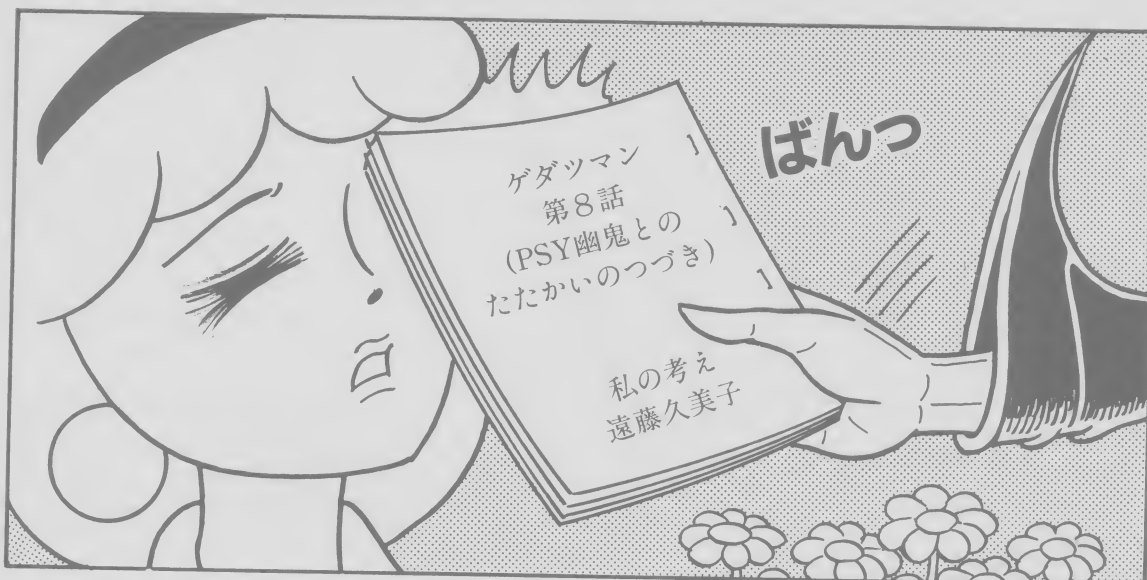 ばんっ
ゲダツマン
第8話
(PSY幽鬼との
たたかいのつづき)
私の考え
遠藤久美子